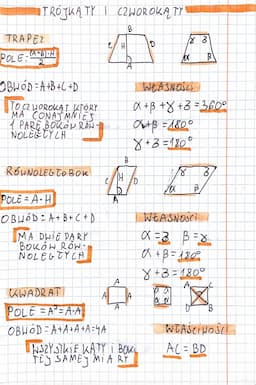 TRÓJKĄTY I CZWOROKĄTY
TRAPEZ
POLE = (A+B)·H
2
OBWÓD = A+B+C+D
TO CZWOROKĄT KTÓRY
MA CONAJMNIEJ
1 PARĘ BOKÓW RÓW-
NOLEGŁYCH
WŁASNOŚCI
α+β+γ+δ=360°
α+β=180°
γ+δ=180°
RÓWNOLEGŁOBOK
POLE = A·H
OBWÓD = A+B+C+D
MA DWIE PARY
BOKÓW RÓW-
NOLEGŁYCH
WŁASNOŚCI
α=δ β=γ
α+β=180°
γ+δ=180°
KWADRAT
POLE = A²=A·A
OBWÓD = A+A+A+A=4A
WSZYSTKIE KĄTY I BOKI
TEJ SAMEJ MIARY
WŁAŚCIWOŚCI
AC = BD